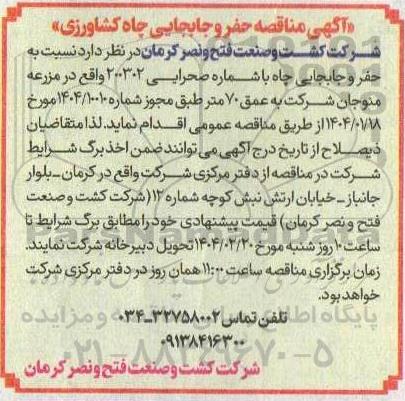 «آگهی مناقصه حفر و جابجایی چاه کشاورزی»
شرکت کشت و صنعت فتح و نصر کرمان در نظر دارد نسبت به
حفر و جابجایی چاه با شماره صحرایی ۲۰۰۳۰۲ واقع در مزرعه
منوجان شرکت به عمق ۷۰ متر طبق مجوز شماره ۱۴۰۴/۱۰۰۱۰ مورخ
۱۴۰۴/۰۱/۱۸ از طریق مناقصه عمومی اقدام نماید. لذا متقاضیان
ذیصلاح از تاریخ درج آگهی می توانند ضمن اخذ برگ شرایط
شرکت در مناقصه از دفتر مرکزی شرکت واقع در کرمان ـ بلوار
جانباز ـ خیابان ارتش نبش کوچه شماره ۱۲ (شرکت کشت و صنعت
فتح و نصر کرمان) قیمت پیشنهادی خود را مطابق برگ شرایط تا
ساعت ۱۰ روز شنبه مورخ ۱۴۰۴/۰۲/۲۰ تحویل دبیرخانه شرکت نمایند.
زمان برگزاری مناقصه ساعت ۱۱:۰۰ همان روز در دفتر مرکزی شرکت
خواهد بود.
تلفن تماس ۳۲۷۵۸۰۰۲-۰۳۴
۰۹۱۳۸۴۱۶۳۰۰
شرکت کشت و صنعت فتح و نصر کرمان
پایگاه اطلاع رسانی مناقصه و مزایده
۰۲۱-۸۸۳۴۹۶۷۰-۵